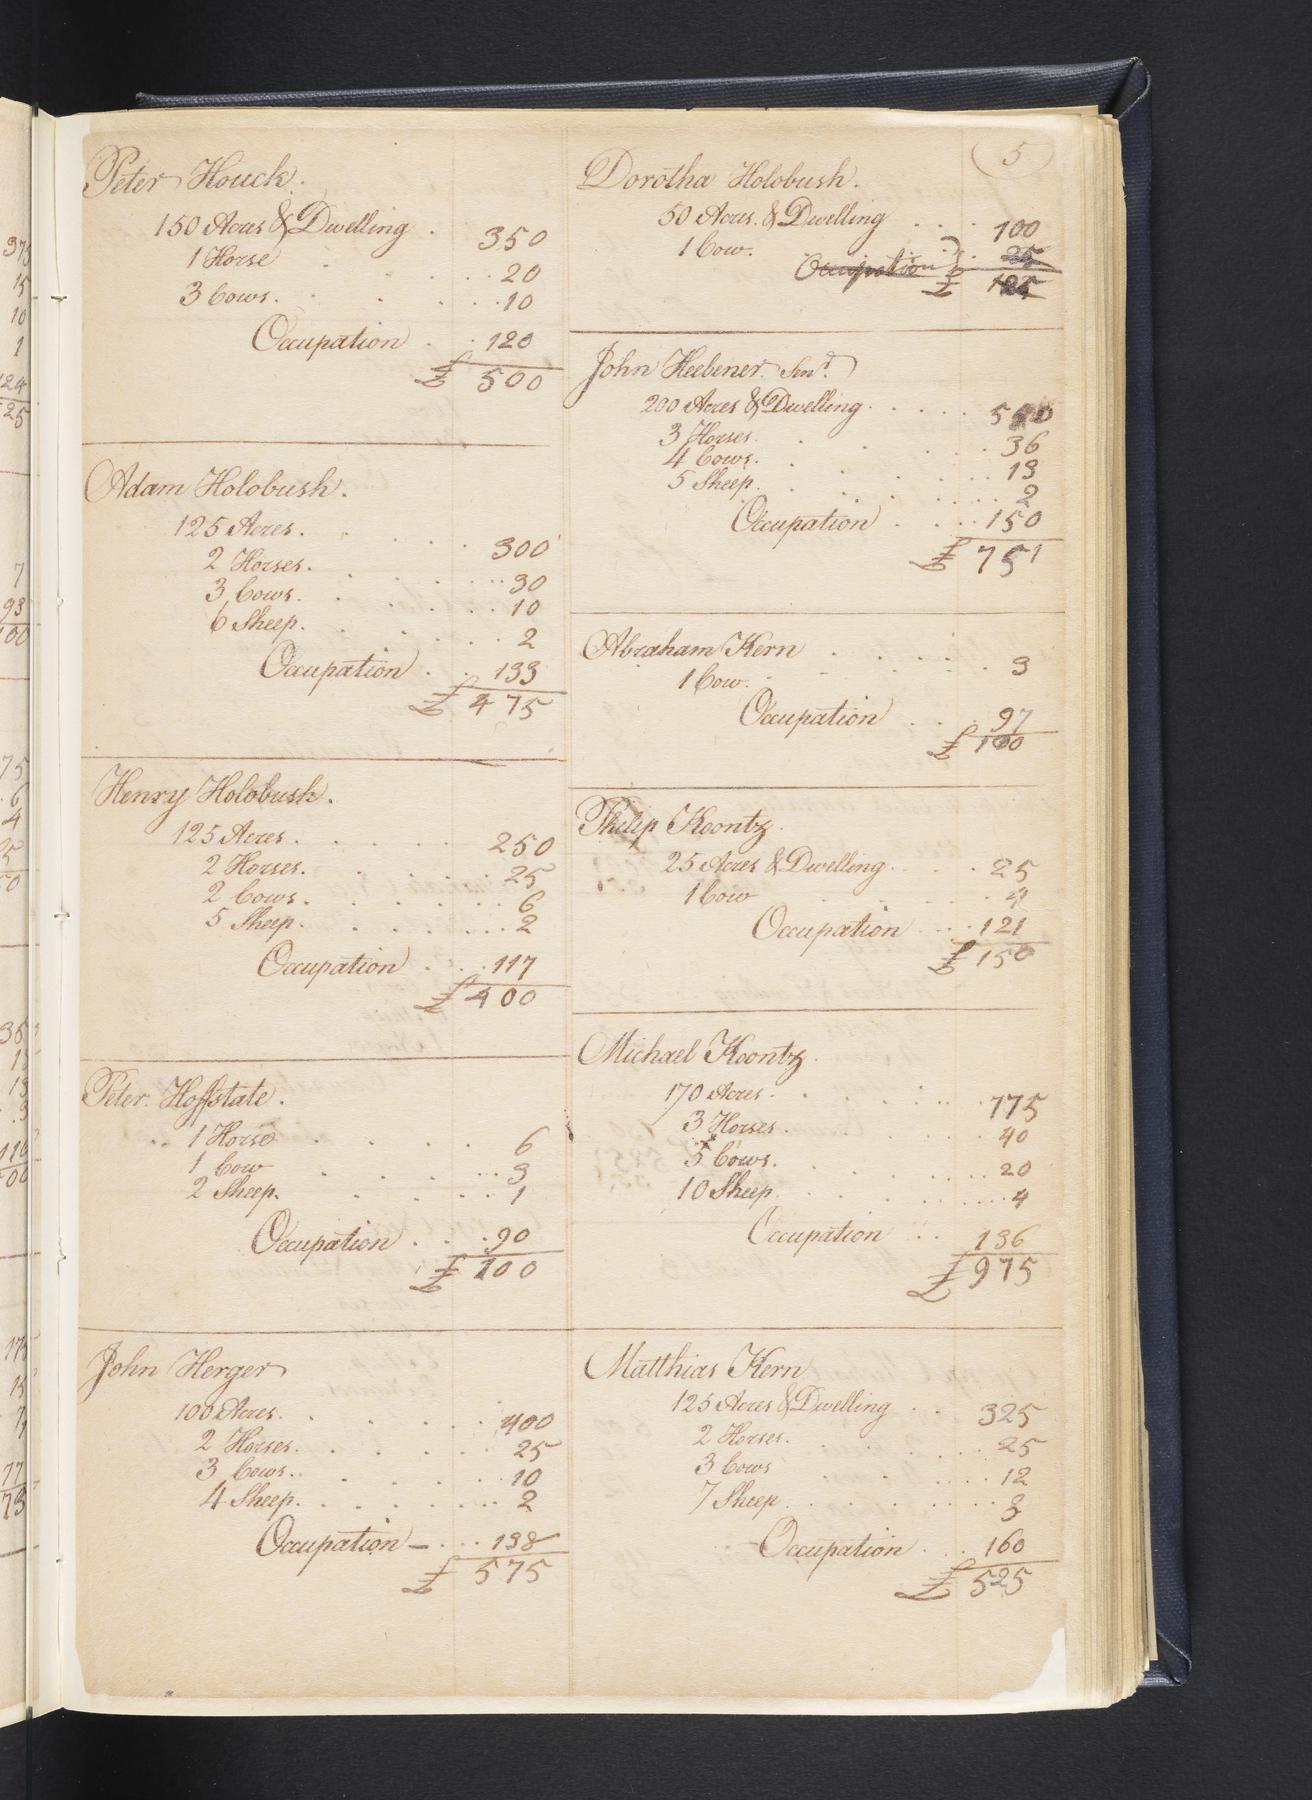 Peter Houck.
150 Acres & Dwelling . 350
1 Horse . . . . 20
3 Cows. . . . . 10
Occupation . . 120
£ 500
Adam Holobush.
125 Acres. . . . 300
2 Horses. . . . 30
3 Cows. . . . . 10
6 Sheep. . . . 2
Occupation . . 133
£ 475
Henry Holobush.
125 Acres. . . . . 250
2 Horses. . . . 25
2 Cows. . . . . 6
5 Sheep. . . . . 2
Occupation . . 117
£ 400
Peter. Hoffstate.
1 Horse . . . . 6
1 Cow . . . . 3
2 Sheep. . . . 1
Occupation . . . 90
£ 100
John Herger
100 Acres. . . . . 400
2 Horses. . . . . 25
3 Cows. . . . . 10
4 Sheep. . . . . 2
Occupation — . . . 138
£ 575
5
Dorotha Holobush.
50 Acres. & Dwelling . . . 100
1 Cow. . . . 25
Occupation
£ 125
John Heebener. Senr.
200 Acres & Dwelling . . . . . 550
3 Horses. . . . . 36
4 Cows. . . . . 13
5 Sheep. . . . . 2
Occupation . . . . 150
£ 751
Abraham Kern . . . .
1 Cow. . . . . 3
Occupation . . . 97
£ 100
Philip Koontz.
25 Acres & Dwelling . . . . 25
1 Cow . . . . 4
Occupation . . . 121
£ 150
Michael Koontz.
170 Acres. . . . . 775
3 Horses. . . . . 40
5 Cows. . . . . 20
10 Sheep. . . . . 4
Occupation . . . 136
£ 975
Matthias Kern
125 Acres & Dwelling . . 325
2 Horses. . . . . 25
3 Cows . . . . . 12
7 Sheep. . . . . 3
Occupation . . . 160
£ 525